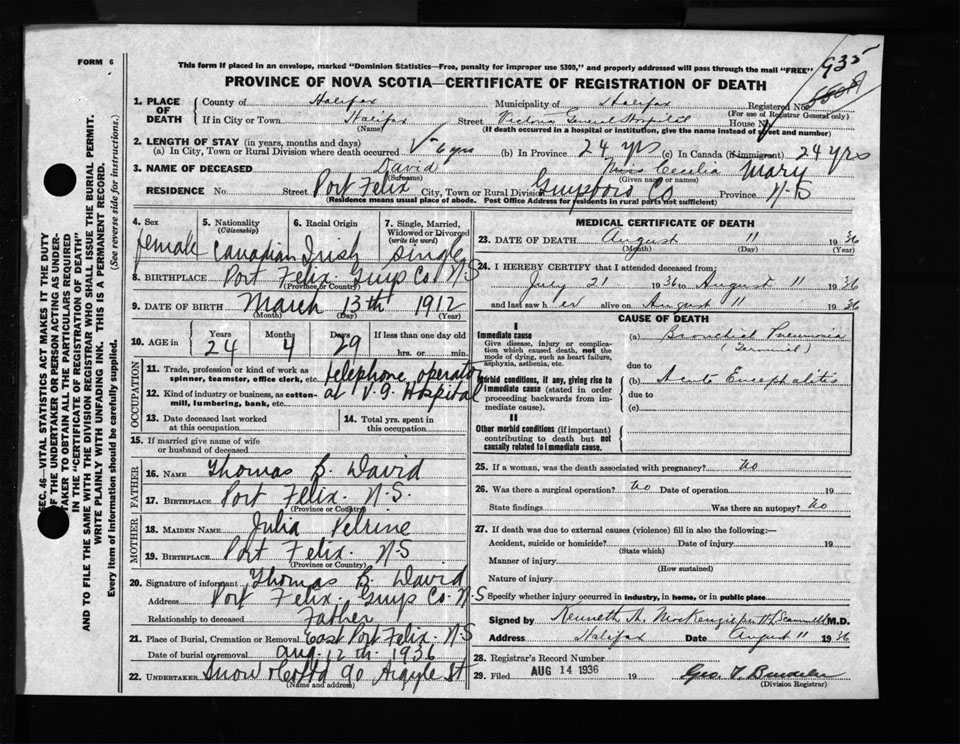 FORM 6
This form if placed in an envelope, marked "Dominion Statistics—Free, penalty for improper use $300," and properly addressed will pass through the mail "FREE"
935
PROVINCE OF NOVA SCOTIA—CERTIFICATE OF REGISTRATION OF DEATH
1. PLACE OF DEATH
County of Halifax Municipality of Halifax Registered No.
(For use of Registrar General only)
If in City or Town Halifax Street Victoria General Hospital House No.
(Name) (If death occurred in a hospital or institution, give the name instead of street and number)
2. LENGTH OF STAY (in years, months and days)
(a) In City, Town or Rural Division where death occurred 6 yrs (b) In Province 24 yrs (c) In Canada (if immigrant) 24 yrs
3. NAME OF DECEASED David Miss Cecilia Mary
(Surname) (Given name or names)
RESIDENCE No. Street Port Felix City, Town or Rural Division Guysboro Co Province N-S
(Residence means usual place of abode. Post Office Address for residents in rural parts not sufficient)
4. Sex female
5. Nationality (Citizenship) Canadian
6. Racial Origin Irish
7. Single, Married, Widowed or Divorced (write the word) Single
8. BIRTHPLACE Port Felix Guys Co N-S
(Province or Country)
9. DATE OF BIRTH March 13th 1912
(Month) (Day) (Year)
10. AGE in Years 24 Months 4 Days 29 If less than one day old hrs. or min.
OCCUPATION
11. Trade, profession or kind of work as spinner, teamster, office clerk, etc. telephone operator
12. Kind of industry or business, as cotton-mill, lumbering, bank, etc. at V. G. Hospital
13. Date deceased last worked at this occupation
14. Total yrs. spent in this occupation
15. If married give name of wife or husband of deceased
FATHER
16. NAME Thomas B. David
17. BIRTHPLACE Port Felix. N.S.
(Province or Country)
MOTHER
18. MAIDEN NAME Julia Pelrine
19. BIRTHPLACE Port Felix. N-S
(Province or Country)
20. Signature of informant Thomas B. David
Address Port Felix. Guys Co. N-S
Relationship to deceased Father
21. Place of Burial, Cremation or Removal East Port Felix. N-S
Date of burial or removal Aug. 12th. 1936
22. UNDERTAKER Snow & Co Ltd 90 Argyle St
(Name and address)
MEDICAL CERTIFICATE OF DEATH
23. DATE OF DEATH August 11 1936
(Month) (Day) (Year)
24. I HEREBY CERTIFY that I attended deceased from:
July 21 1936 to August 11 1936
and last saw her alive on August 11 1936
CAUSE OF DEATH
I
Immediate cause
Give disease, injury or complication which caused death, not the mode of dying, such as heart failure, asphyxia, asthenia, etc.
(a) Bronchial Pneumonia
(Terminal)
due to
Morbid conditions, if any, giving rise to immediate cause (stated in order proceeding backwards from immediate cause).
(b) Acute Encephalitis
due to
(c)
II
Other morbid conditions (if important) contributing to death but not causally related to immediate cause.
25. If a woman, was the death associated with pregnancy? No
26. Was there a surgical operation? No Date of operation 19
State findings Was there an autopsy? No
27. If death was due to external causes (violence) fill in also the following:—
Accident, suicide or homicide? Date of injury 19
(State which)
Manner of injury
(How sustained)
Nature of injury
Specify whether injury occurred in industry, in home, or in public place
Signed by Kenneth A. MacKenzie per M.D.
Address Halifax Date August 11 1936
28. Registrar's Record Number
29. Filed AUG 14 1936 19 Geo.
(Division Registrar)
SEC. 46—VITAL STATISTICS ACT MAKES IT THE DUTY
OF THE UNDERTAKER OR PERSON ACTING AS UNDER-
TAKER TO OBTAIN ALL THE PARTICULARS REQUIRED
IN THE "CERTIFICATE OF REGISTRATION OF DEATH"
AND TO FILE THE SAME WITH THE DIVISION REGISTRAR WHO SHALL ISSUE THE BURIAL PERMIT.
WRITE PLAINLY WITH UNFADING INK. THIS IS A PERMANENT RECORD.
Every item of information should be carefully supplied. (See reverse side for instructions.)